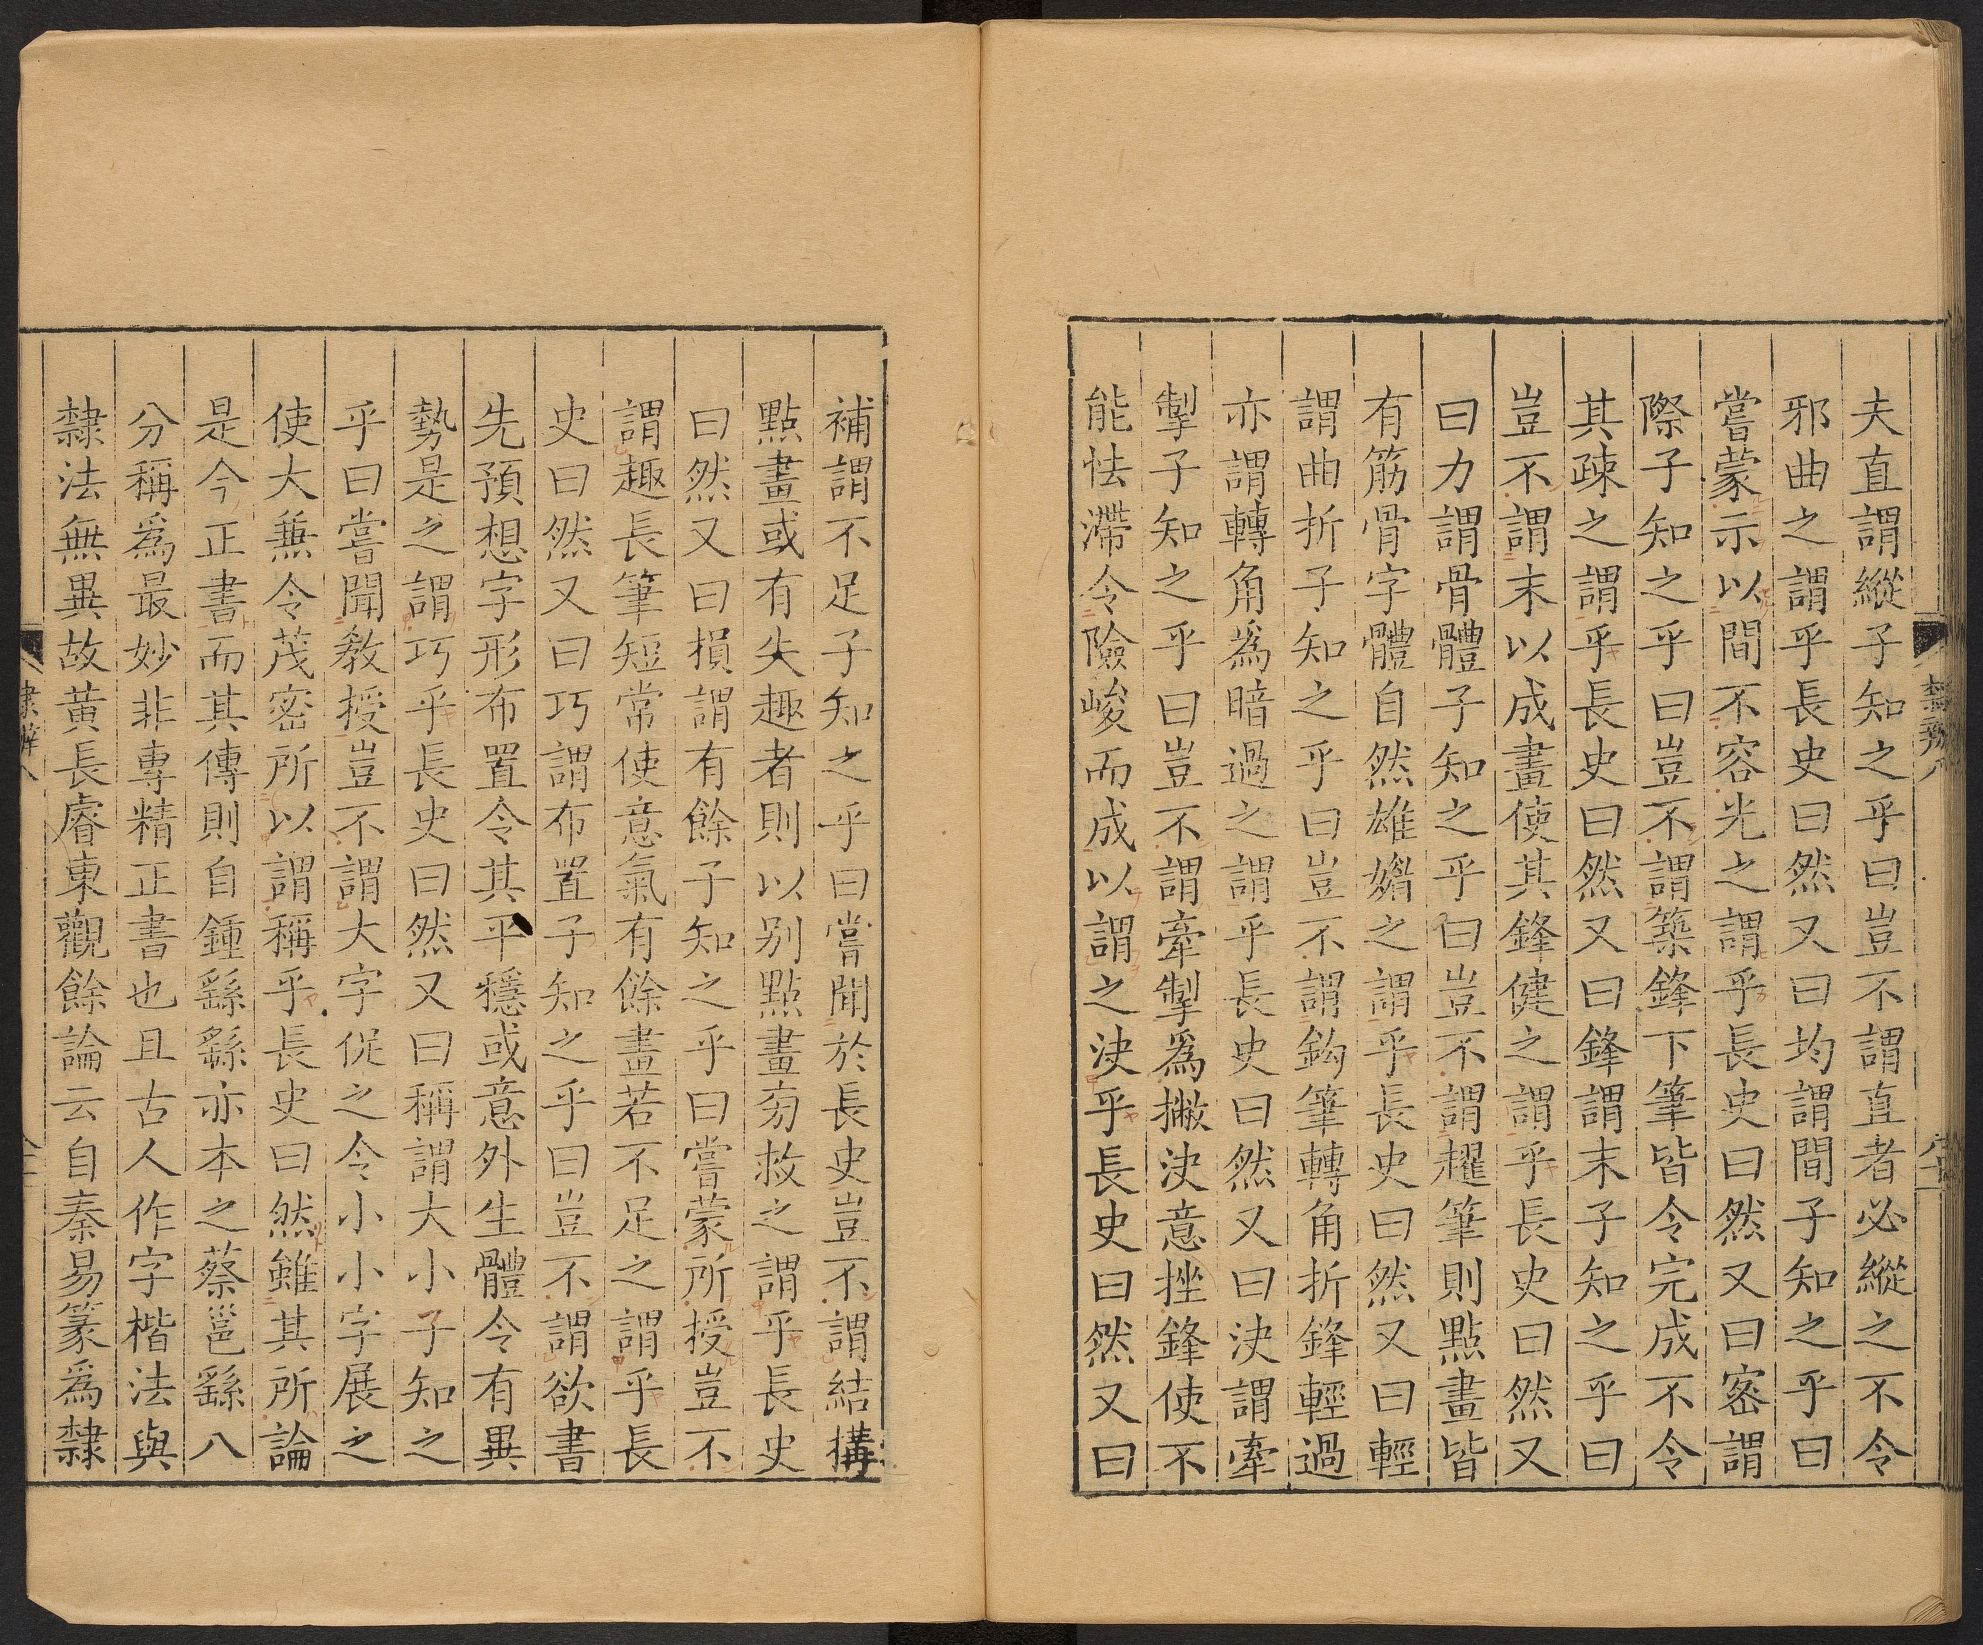 夫直謂縱子知之乎曰豈不謂直者必縱之不令
邪曲之謂乎長史曰然又曰均謂間子知之乎曰
嘗蒙示以間不容光之謂乎長史曰然又曰密謂
際子知之乎曰豈不謂築鋒下筆皆令完成不令
其疎之謂乎長史曰然又曰鋒謂末子知之乎曰
豈不謂末以成畫使其鋒健之謂乎長史曰然又
曰力謂骨體子知之乎曰豈不謂趯筆則點畫皆
有筋骨字體自然雄媚之謂乎長史曰然又曰輕
謂曲折子知之乎曰豈不謂鈎筆轉角折鋒輕過
亦謂轉角為暗過之謂乎長史曰然又曰決謂牽
掣子知之乎曰豈不謂牽掣為撇決意挫鋒使不
能怯滯令險峻而成以謂之決乎長史曰然又曰
補謂不足子知之乎曰嘗聞於長史豈不謂結搆
點畫或有失趣者則以別點畫旁救之謂乎長史
曰然又曰損謂有餘子知之乎曰嘗蒙所授豈不
謂趣長筆短常使意氣有餘畫若不足之謂乎長
史曰然又曰巧謂布置子知之乎曰豈不謂欲書
先預想字形布置令其平穩或意外生體令有異
勢是之謂巧乎長史曰然又曰稱謂大小子知之
乎曰嘗聞教授豈不謂大字促之令小小字展之
使大兼令茂密所以謂稱乎長史曰然雖其所論
是今正書而其傳則自鍾繇繇亦本之蔡邕繇八
分稱為最妙非專精正書也且古人作字楷法與
隸法無異故黃長睿東觀餘論云自秦易篆為隸